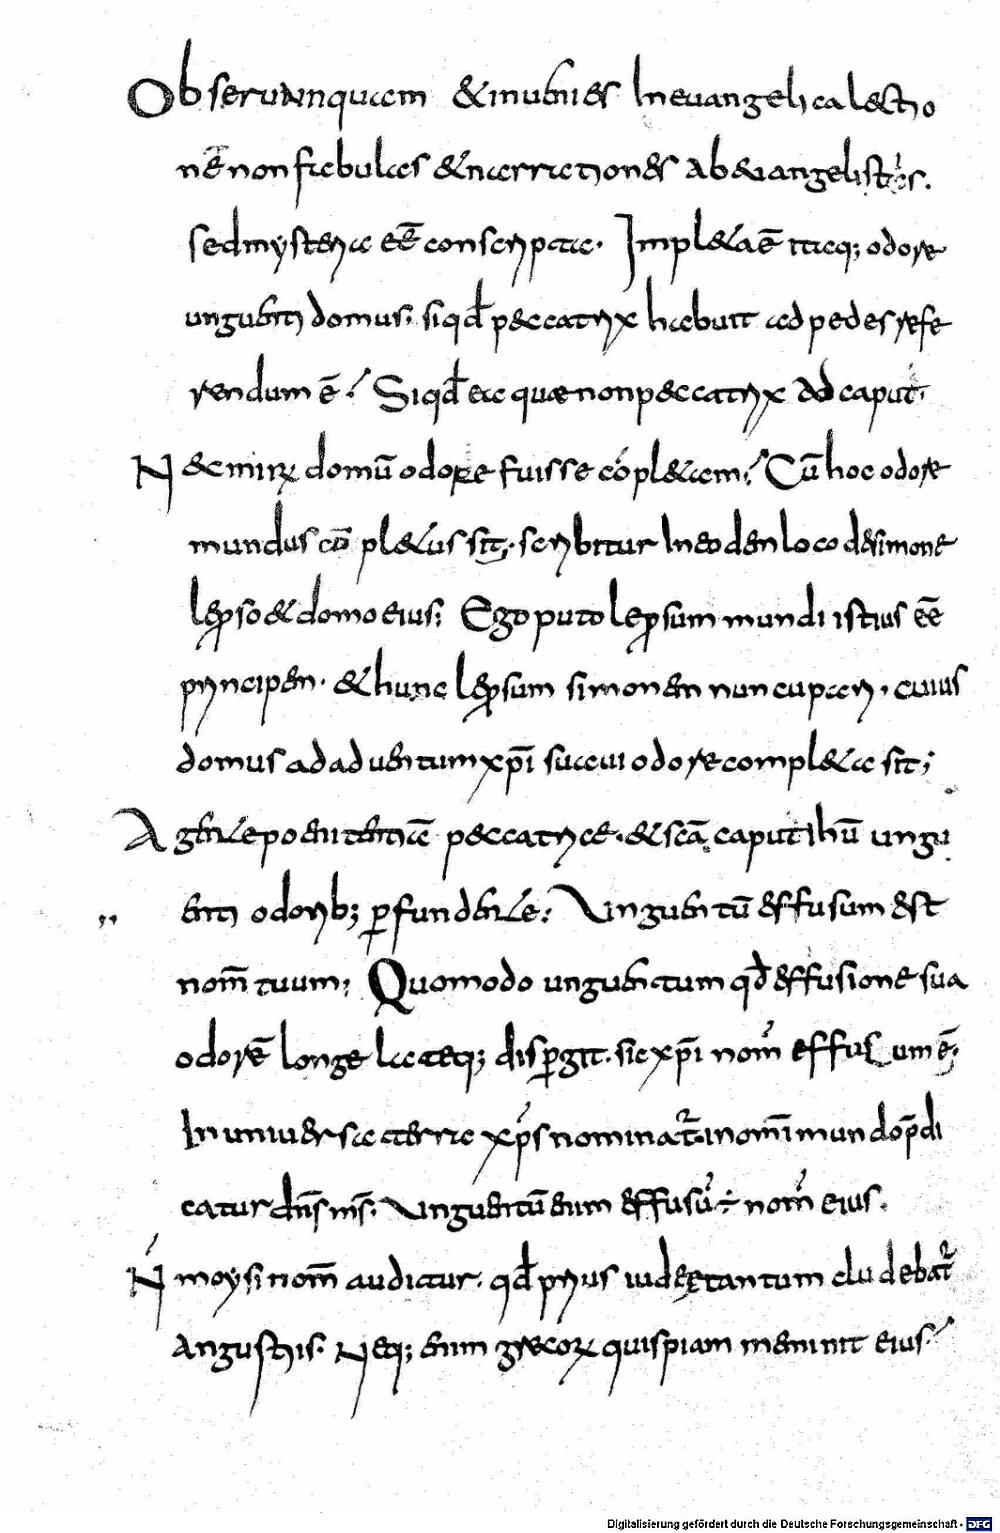 Obserua inquam & inuenies In euangelica lectio
nē non fabulas & narrationes ab euangelistis.
sed mysteria eē conscripta. Impleta ē itaq; odore
unguenti domus; si qđ peccatrix habuit ad pedes refe
rendum ē; Si qđ ea quae non peccatrix ad caput.
Nec mirꝝ domū odore fuisse cōpletam; Cū hoc odore
mundus cōpletus sit; scribitur In eodem loco de simone
leproso & domo eius; Ego puto leprosum mundi istius eē
principem. & hunc leprosum simonem nuncupari, cuius
domus ad aduentum xp̄i suaui odore completa sit;
Agente poenitentiā peccatrice. & scā caput ihū ungu
enti odorib; ꝑfundente; Unguentū effusum est
nom̄ tuum; Quomodo unguentum qđ effusione sua
odorē longe lateq; disꝑgit. sic xp̄i nom̄ effusum ē;
In uniuersa terra xp̄s nominat̃ in om̄i mundo p̄di
catur dn̄s ms̄. Unguentū enim effusū ÷ nom̄ eius.
Ń moysi nom̄ auditur. qđ prius iudęę tantum cludebat̃
angustiis. Neq; enim grecoꝝ quispiam meminit eius;
Digitalisierung gefördert durch die Deutsche Forschungsgemeinschaft - DFG